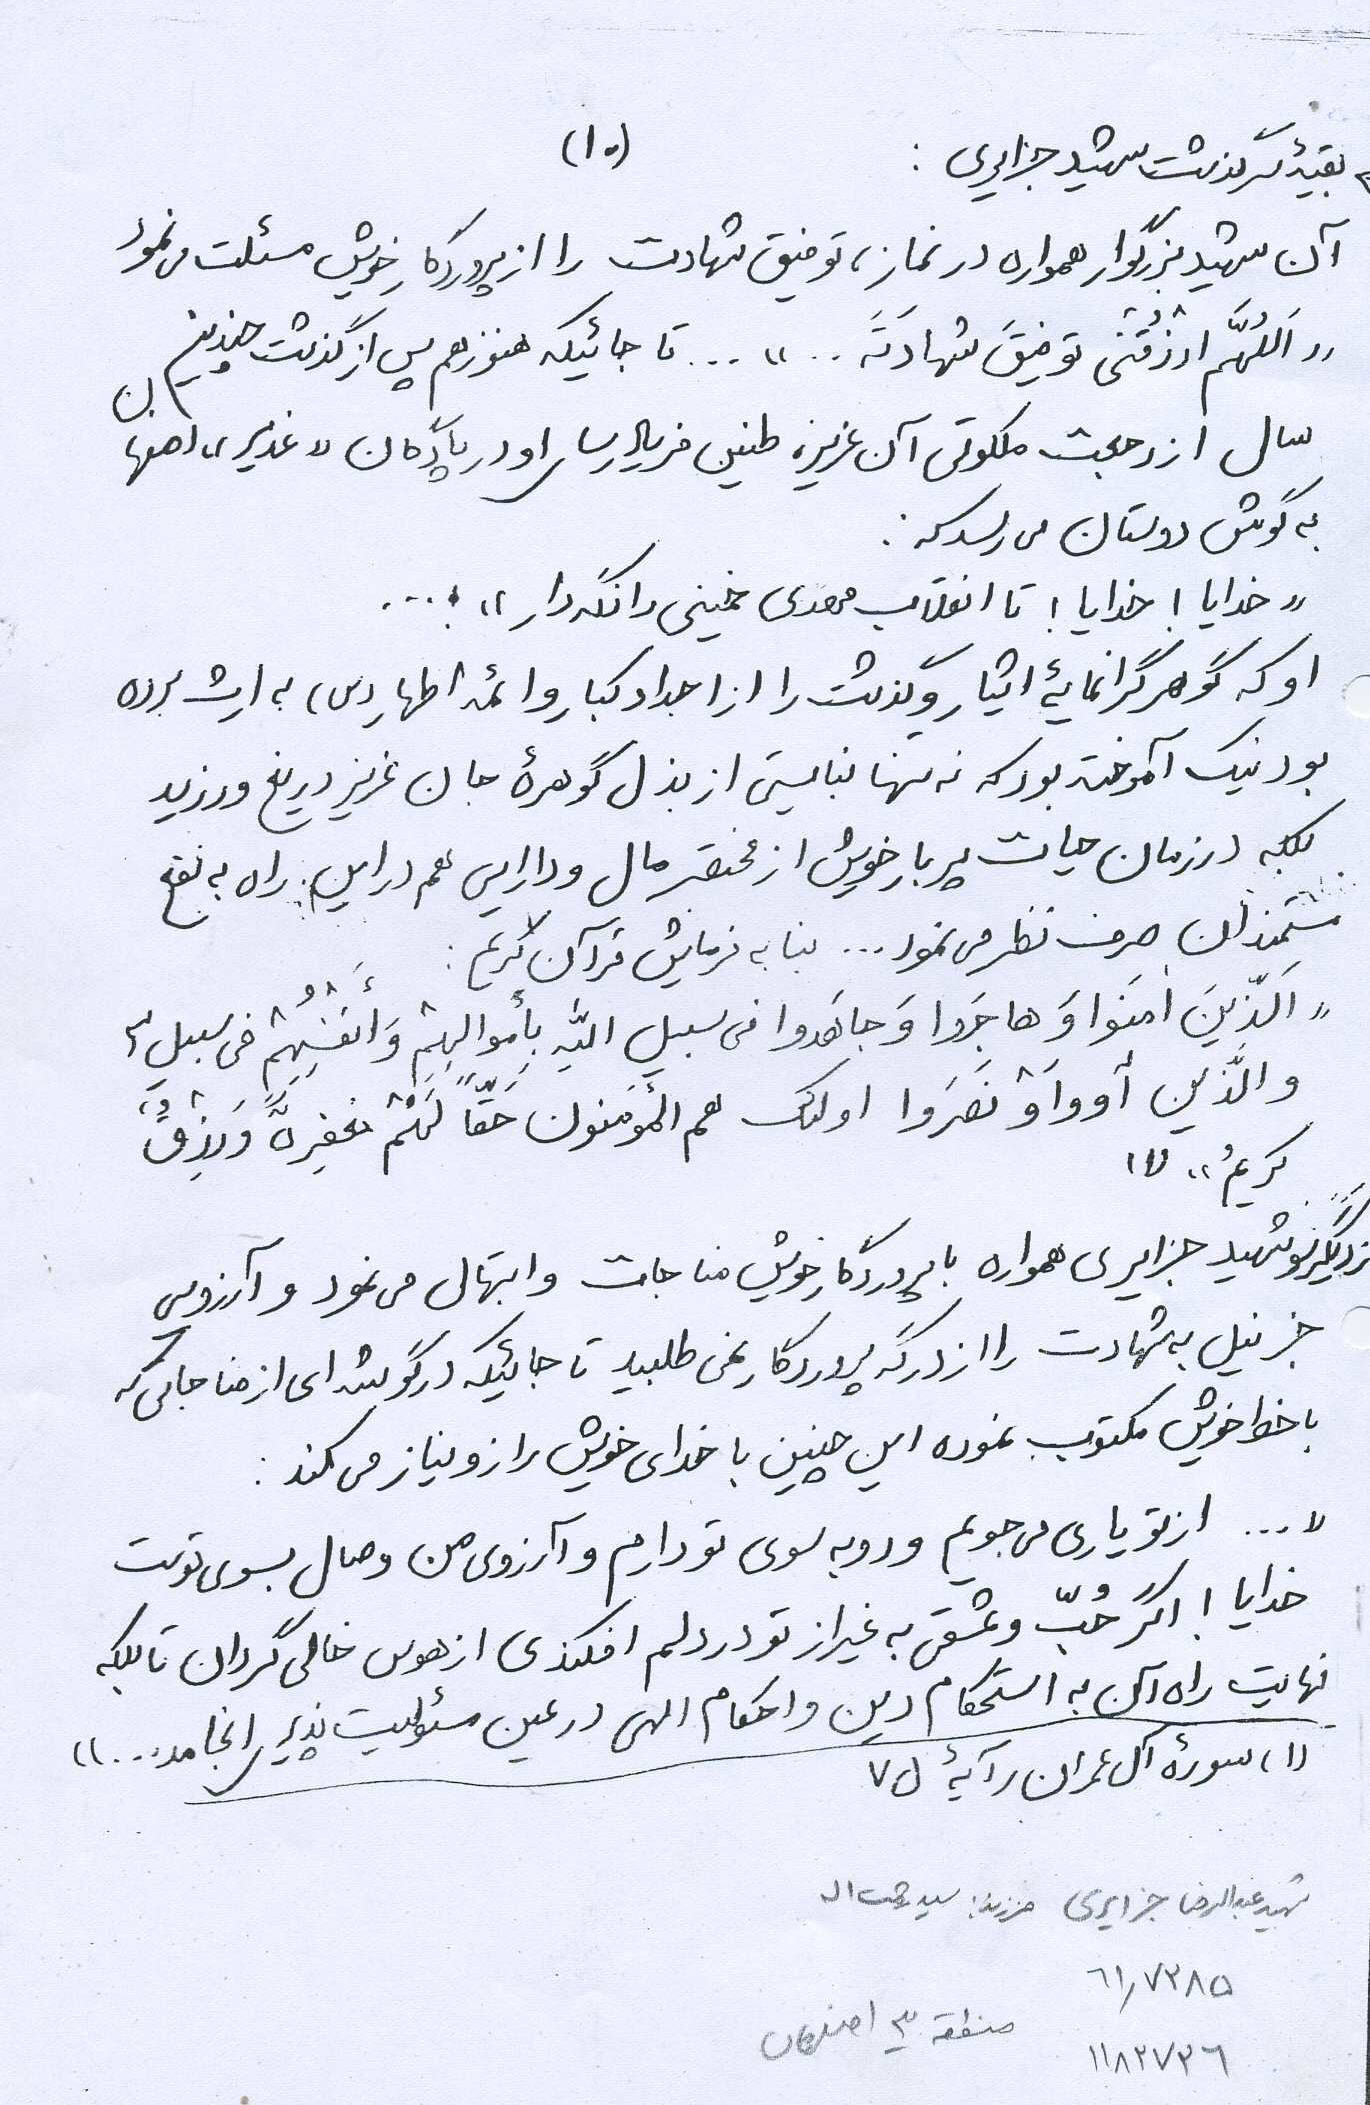 بقیهٔ سرگذشت شهید جزایری : (۱۰)
آن شهید بزرگوار همواره در نماز، توفیق شهادت را از پروردگار خویش مسئلت می نمود
« اَللّهُمَّ ارْزُقْنی توفیقَ شهادَتَه ... » ... تا جائیکه هنوز هم پس از گذشت چندین
سال از رحلت ملکوتی آن عزیز، طنین فریاد رسای او در پادگان « غدیر » اصفهان
به گوش دوستان می رسد که :
« خدایا ! خدایا ! تا انقلاب مهدی خمینی را نگه دار » . ...
او که گوهر گرانمایهٔ ایثار و گذشت را از اجداد کبار و ائمه اطهار (س) به ارث برده
بود نیک آموخته بود که نه تنها نبایستی از بذل گوهرهٔ جان عزیز دریغ ورزید
بلکه در زمان حیات پر بار خویش از مختصر مال و دارایی هم در این راه به نفع
مستمندان صرف نظر می نمود ... بنا به فرمایش قرآن کریم :
« اَلَّذینَ امَنَوا وَ هاجَروا وَ جاهَدوا فی سبیلِ اللهِ بِأموالِهِمْ وَ أنفُسِهِمْ فی سبیلِ
و الَّذین أووا وَ نَصَرَوا اولئک هم المؤمنون حَقّاً لَهُمْ مَغفِرةً وَ رِزقٌ
کریمٌ » (۱)
شهید جزایری همواره با پروردگار خویش مناجات و ابتهال می نمود و آرزویی
جز نیل به شهادت را از درگه پروردگار نمی طلبید تا جائیکه در گوشه ای از مناجاتی که
با خط خویش مکتوب نموده این چنین با خدای خویش راز و نیاز می کند :
« ... از تو یاری می جویم و رو به سوی تو دارم و آرزوی من وصال بسوی توست
خدایا ! اگر حُبّ و عشقی به غیر از تو در دلم افکندی از هوس خالی گردان تا بلکه
نهایت راه آن به استحکام دین و احکام الهی در عین مسئولیت پذیری انجامد ... »
(۱) سورهٔ آل عمران ر آیهٔ ۷۵
شهید عبدالرضا جزایری فرزند: سید
۶۱٫۷۲۸۵
منطقه ۳ اصفهان
۱۱۸۲۷۳۶